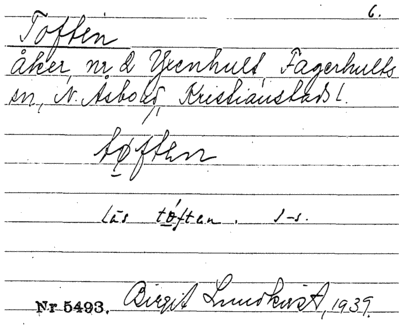 6.
Toften
åker, nr 2 Yxenhult, Fagerhults
sn, N. Åsbo hd, Kristianstads l.
tøften
läs tøften. J-s.
Nr 5493. Birgit Lundkvist, 1939.